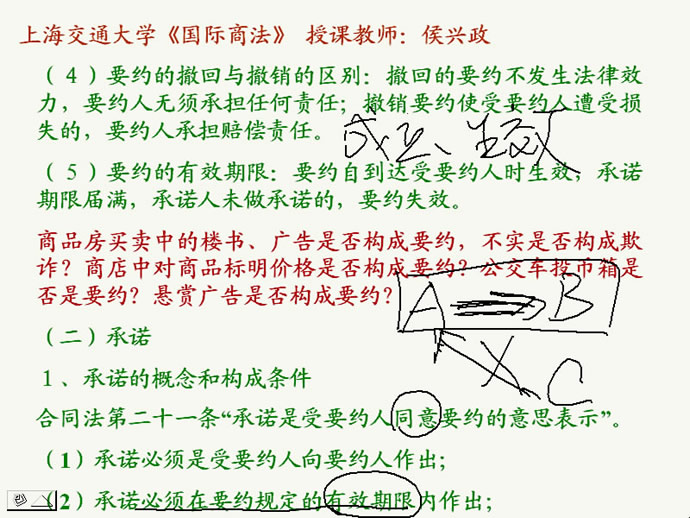 上海交通大学《国际商法》 授课教师：侯兴政
（４）要约的撤回与撤销的区别：撤回的要约不发生法律效
力，要约人无须承担任何责任；撤销要约使受要约人遭受损
失的，要约人承担赔偿责任。
成立、生效
（５）要约的有效期限：要约自到达受要约人时生效，承诺
期限届满，承诺人未做承诺的，要约失效。
商品房买卖中的楼书、广告是否构成要约，不实是否构成欺
诈？商店中对商品标明价格是否构成要约？公交车投币箱是
否是要约？悬赏广告是否构成要约？
A B
X C
（二）承诺
１、承诺的概念和构成条件
合同法第二十一条“承诺是受要约人同意要约的意思表示”。
（1）承诺必须是受要约人向要约人作出；
（2）承诺必须在要约规定的有效期限内作出；